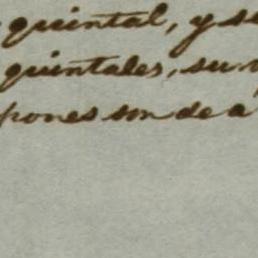 quintal, y su
quintales, su
pones son de a